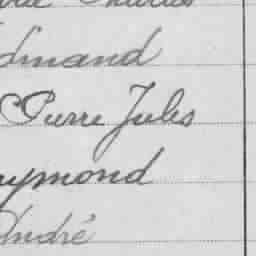 Charles
dmand
Pierre Jules
aymond
André